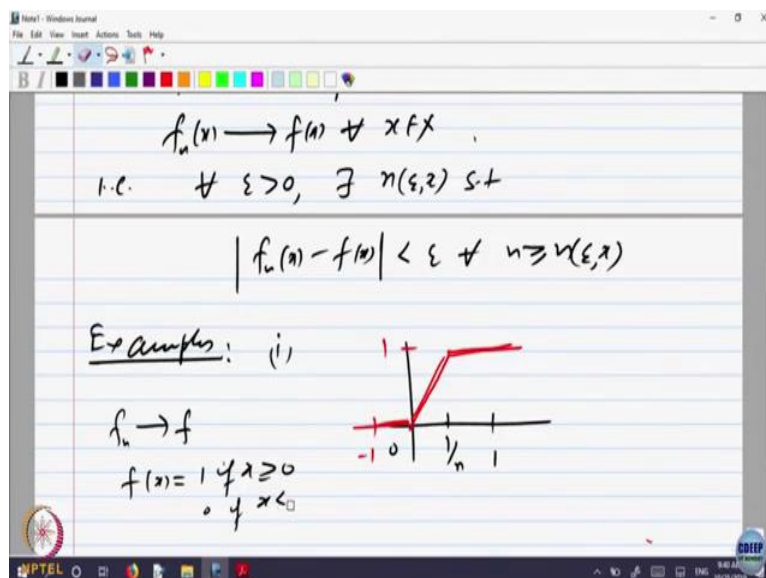 Note1 - Windows Journal
File Edit View Insert Actions Tools Help
B I
fₙ(x) ⟶ f(x) ∀ x ∈ X
i.e. ∀ ε > 0, ∃ n(ε, x) s.t
| fₙ(x) − f(x) | < ε ∀ n ≥ n(ε, x)
Examples: (i)
1
-1 0 1/n 1
fₙ → f
f(x) = 1 if x ≥ 0
0 if x <
NPTEL
CDEEP
ENG